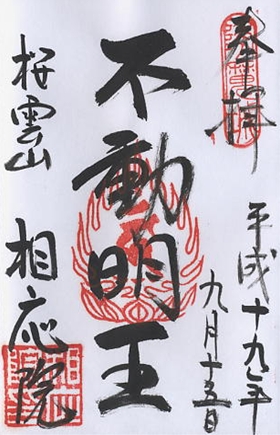 奉拝
平成十九年
九月十五日
不動明王
桜雲山
相応院